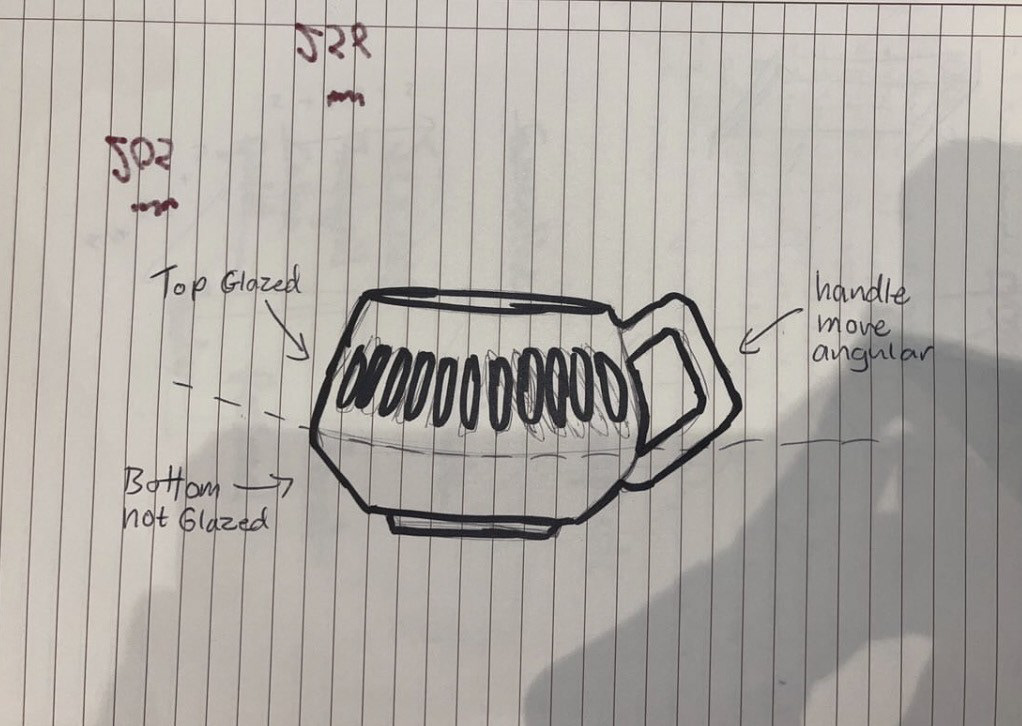 Top Glazed
handle
move
angular
Bottom
not Glazed